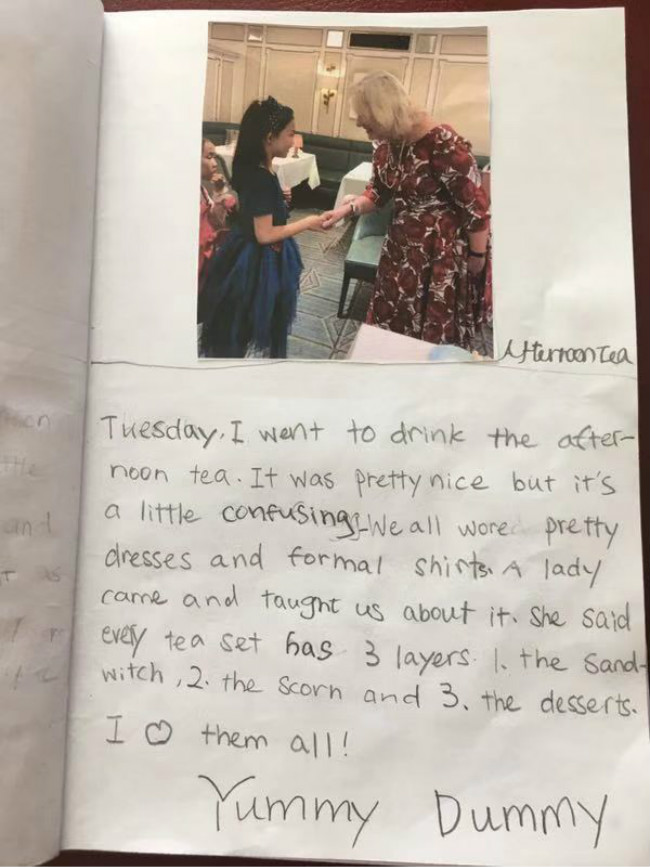 Afternoon Tea
Tuesday, I went to drink the after-
noon tea. It was pretty nice but it's
a little confusing! We all wore pretty
dresses and formal shirts. A lady
came and taught us about it. She said
every tea set has 3 layers. 1. the sand-
witch, 2. the scorn and 3. the desserts.
I ♡ them all!
Yummy Dummy